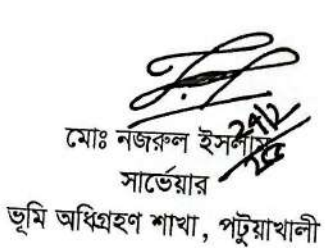 মোঃ নজরুল ইসলাম
সার্ভেয়ার
ভূমি অধিগ্রহণ শাখা, পটুয়াখালী